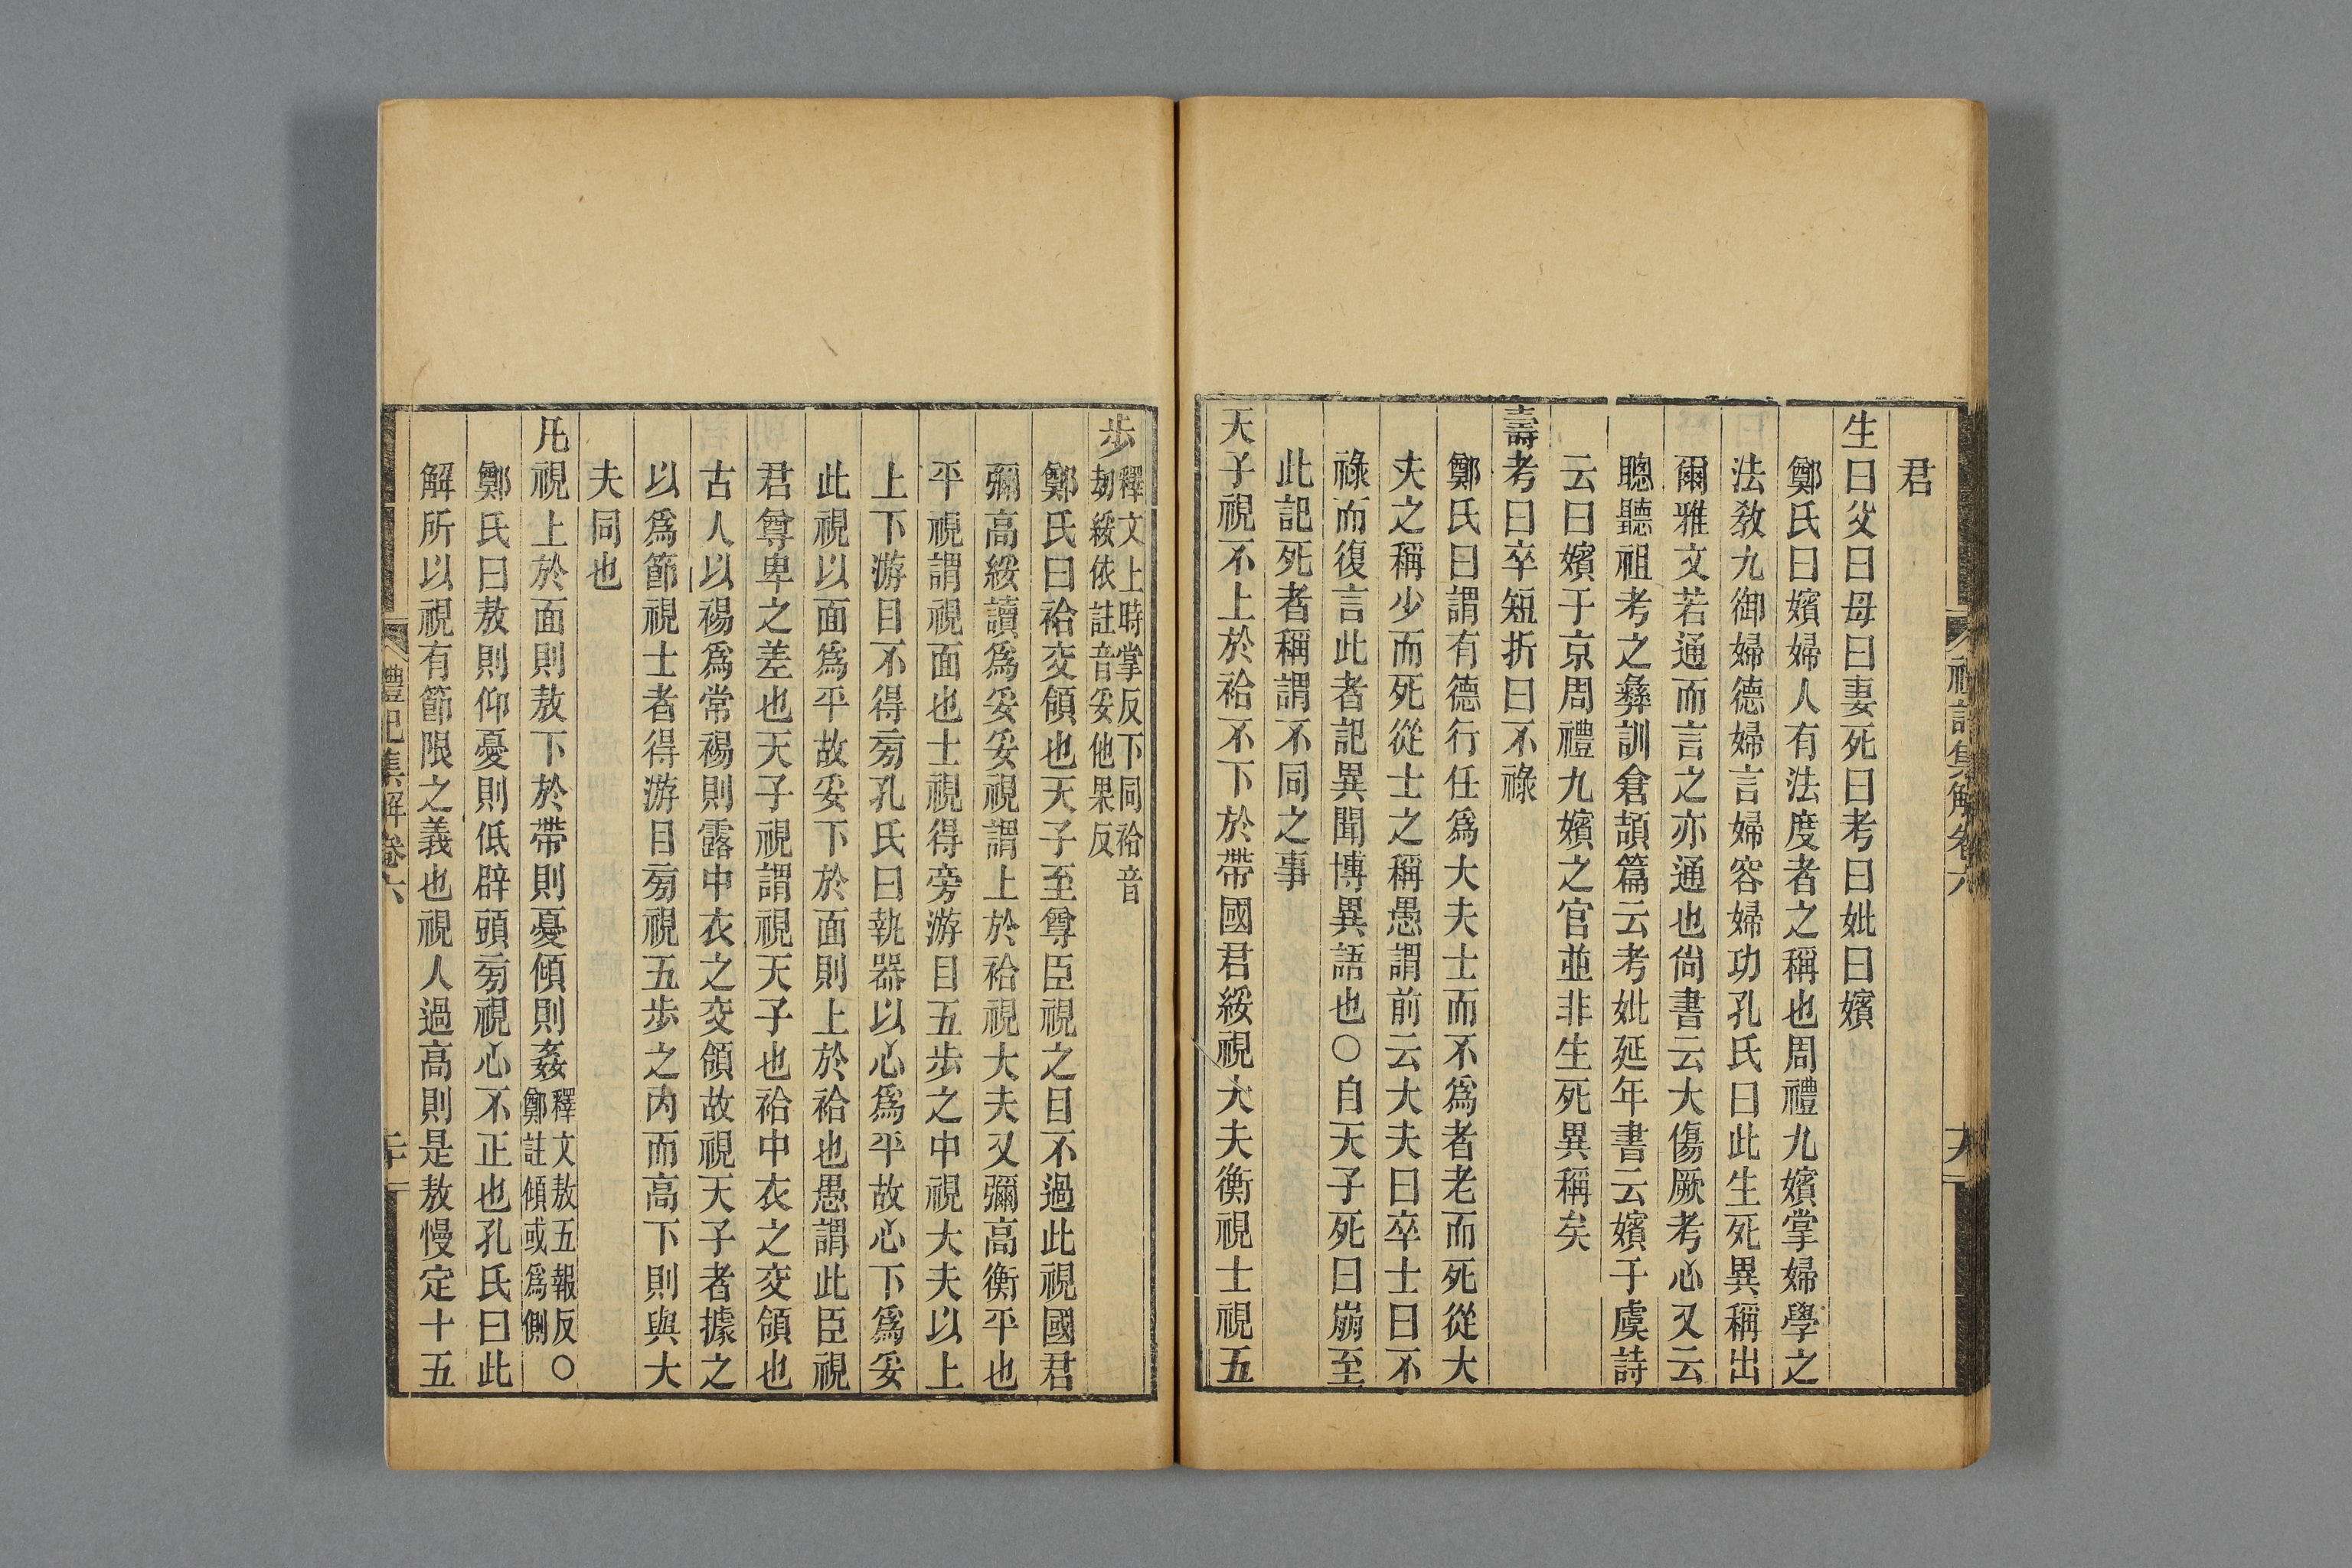 君
生曰父曰母曰妻死曰考曰妣曰嬪
鄭氏曰嬪婦人有法度者之稱也周禮九嬪掌婦學之
法敎九御婦德婦言婦容婦功孔氏曰此生死異稱出
爾雅文若通而言之亦通也尙書云大傷厥考心又云
聰聽祖考之彝訓倉頡篇云考妣延年書云嬪于虞詩
云曰嬪于京周禮九嬪之官並非生死異稱矣
壽考曰卒短折曰不祿
鄭氏曰謂有德行任爲大夫士而不爲者老而死從大
夫之稱少而死從士之稱愚謂前云大夫曰卒士曰不
祿而復言此者記異聞博異語也○自天子死曰崩至
此記死者稱謂不同之事
天子視不上於袷不下於帶國君綏視大夫衡視士視五
禮記集解卷六
步釋文上時掌反下同袷音
劫綏依註音妥他果反
鄭氏曰袷交領也天子至尊臣視之目不過此視國君
彌高綏讀爲妥妥視謂上於袷視大夫又彌高衡平也
平視謂視面也士視得旁游目五步之中視大夫以上
上下游目不得旁孔氏曰執器以心爲平故心下爲妥
此視以面爲平故妥下於面則上於袷也愚謂此臣視
君尊卑之差也天子視謂視天子也袷中衣之交領也
古人以裼爲常裼則露中衣之交領故視天子者據之
以爲節視士者得游目旁視五步之内而高下則與大
夫同也
凡視上於面則敖下於帶則憂傾則姦釋文敖五報反○
鄭註傾或爲側
鄭氏曰敖則仰憂則低辟頭旁視心不正也孔氏曰此
解所以視有節限之義也視人過高則是敖慢定十五
禮記集解卷六